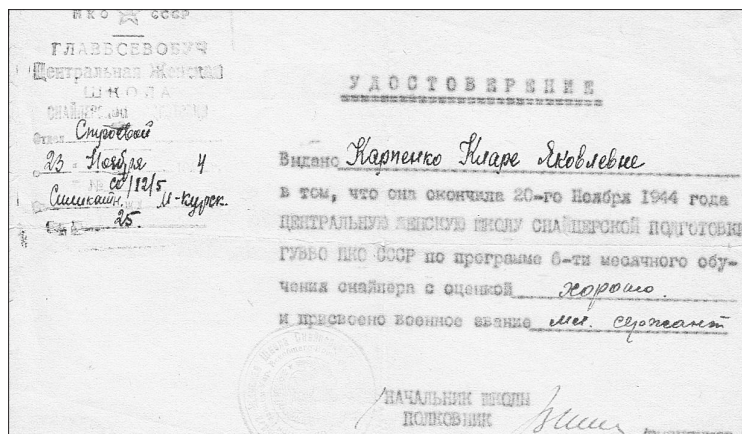 НКО СССР
ГЛАВВСЕВОБУЧ
Центральная Женская
ШКОЛА
Отдел Строевой
23 Ноября 4
М-Курск.
25.
УДОСТОВЕРЕНИЕ
Выдано Карпенко Кларе Яковлевне
в том, что она окончила 20-го Ноября 1944 года
ЦЕНТРАЛЬНУЮ ЖЕНСКУЮ ШКОЛУ СНАЙПЕРСКОЙ ПОДГОТОВКИ
ГУВВО НКО СССР по программе 6-ти месячного обу-
чения снайпера с оценкой хорошо.
и присвоено военное звание мл. сержант
НАЧАЛЬНИК ШКОЛЫ
ПОЛКОВНИК